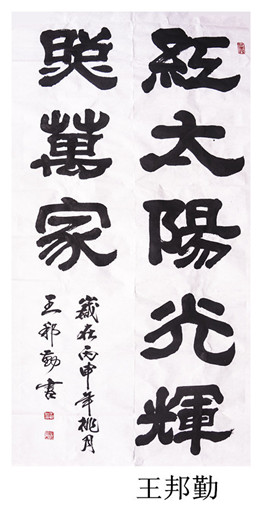 紅太陽光輝
照萬家
歲在丙申年桃月
王邦勤書
王邦勤